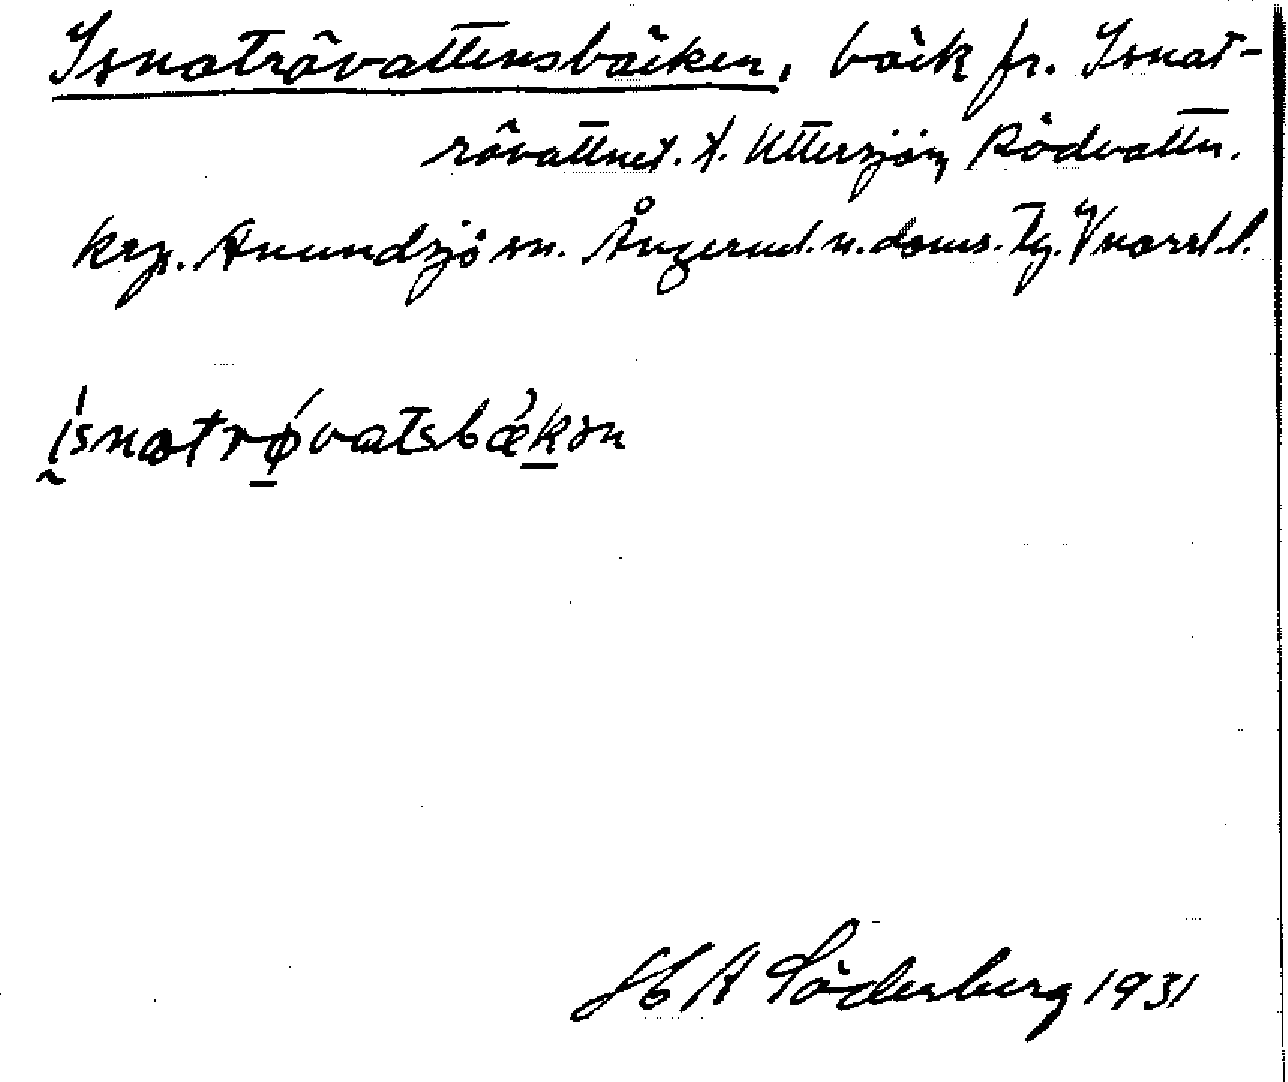 Isnatrövattensbäcken, bäck fr. Isnat-
rövattnet t. Uttersjön, Rödvattn.
krp. Anundsjö sn. Ångerml. n. doms. Tg. Vnorrl. l.
isnatrøvatsbækən
H A Söderberg 1931